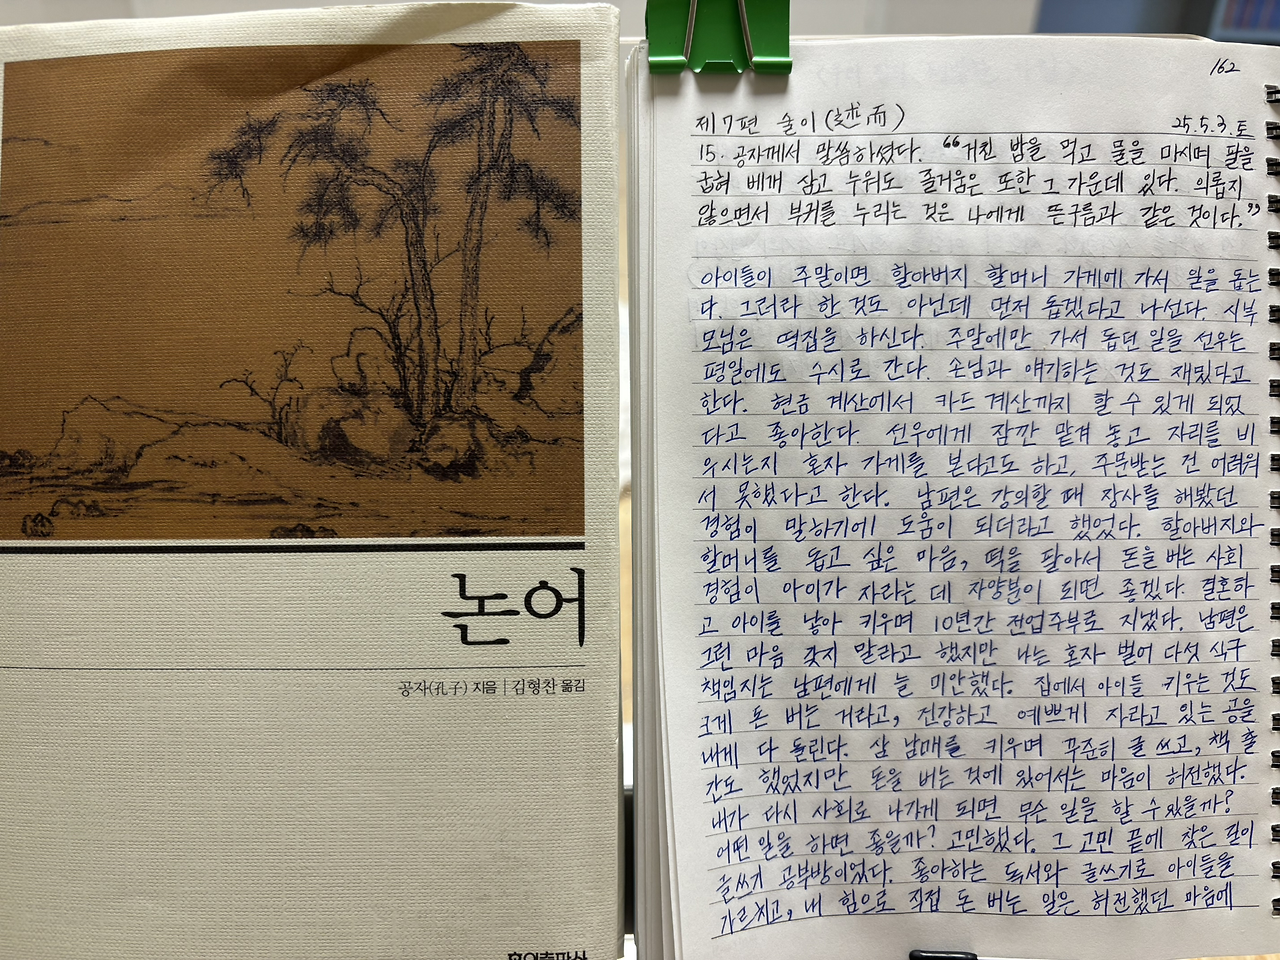 논어
공자(孔子) 지음 | 김형찬 옮김
홍익출판사
162
제7편 술이(述而)
25.5.3.토
15. 공자께서 말씀하셨다. “거친 밥을 먹고 물을 마시며 팔을
굽혀 베개 삼고 누워도 즐거움은 또한 그 가운데 있다. 의롭지
않으면서 부귀를 누리는 것은 나에게 뜬구름과 같은 것이다.”
아이들이 주말이면 할아버지 할머니 가게에 가서 일을 돕는
다. 그러라 한 것도 아닌데 먼저 돕겠다고 나선다. 시부
모님은 떡집을 하신다. 주말에만 가서 돕던 일을 선우는
평일에도 수시로 간다. 손님과 얘기하는 것도 재밌다고
한다. 현금 계산에서 카드 계산까지 할 수 있게 되었
다고 좋아한다. 선우에게 잠깐 맡겨 놓고 자리를 비
우시는지 혼자 가게를 본다고도 하고, 주문받는 건 어려워
서 못했다고 한다. 남편은 강의할 때 장사를 해봤던
경험이 말하기에 도움이 되더라고 했었다. 할아버지와
할머니를 돕고 싶은 마음, 떡을 팔아서 돈을 버는 사회
경험이 아이가 자라는 데 자양분이 되면 좋겠다. 결혼하
고 아이를 낳아 키우며 10년간 전업주부로 지냈다. 남편은
그런 마음 갖지 말라고 했지만 나는 혼자 벌어 다섯 식구
책임지는 남편에게 늘 미안했다. 집에서 아이들 키우는 것도
크게 돈 버는 거라고, 건강하고 예쁘게 자라고 있는 공을
내게 다 돌린다. 삼 남매를 키우며 꾸준히 글 쓰고, 책 출
간도 했었지만 돈을 버는 것에 있어서는 마음이 허전했다.
내가 다시 사회로 나가게 되면 무슨 일을 할 수 있을까?
어떤 일을 하면 좋을까? 고민했다. 그 고민 끝에 찾은 길이
글쓰기 공부방이었다. 좋아하는 독서와 글쓰기로 아이들을
가르치고, 내 힘으로 직접 돈 버는 일은 허전했던 마음에